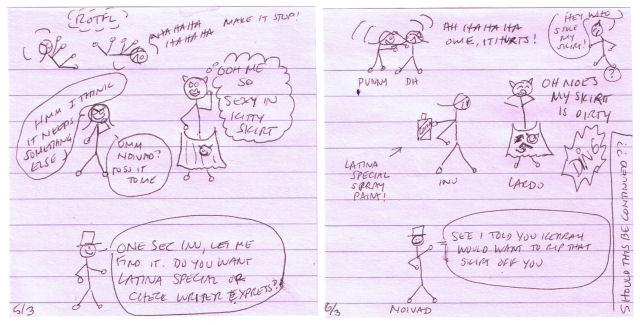 ROTFL
HAHAHA
HAHAHA
MAKE IT STOP!
OOH ME
SO
SEXY IN
KITTY
SKIRT
HMM I THINK
IT NEEDS
SOMETHING
ELSE
UMM
NOIVAD?
TOSS IT
TO ME
ONE SEC INU, LET ME
FIND IT. DO YOU WANT
LATINA SPECIAL OR
CHECK WRITER EXPRESS?
5/3
AH HAHAHA HA
OWIE, IT HURTS!
PUNNY
DH
HEY WHO
STOLE
MY
SKIRT!
?
OH NOES
MY SKIRT
IS DIRTY
LATINA
SPECIAL
SPRAY
PAINT!
INU
LARDO
SEE I TOLD YOU
WOULD WANT TO RIP THAT
SKIRT OFF YOU
NOIVAD
6/3
SHOULD THIS BE CONTINUED??